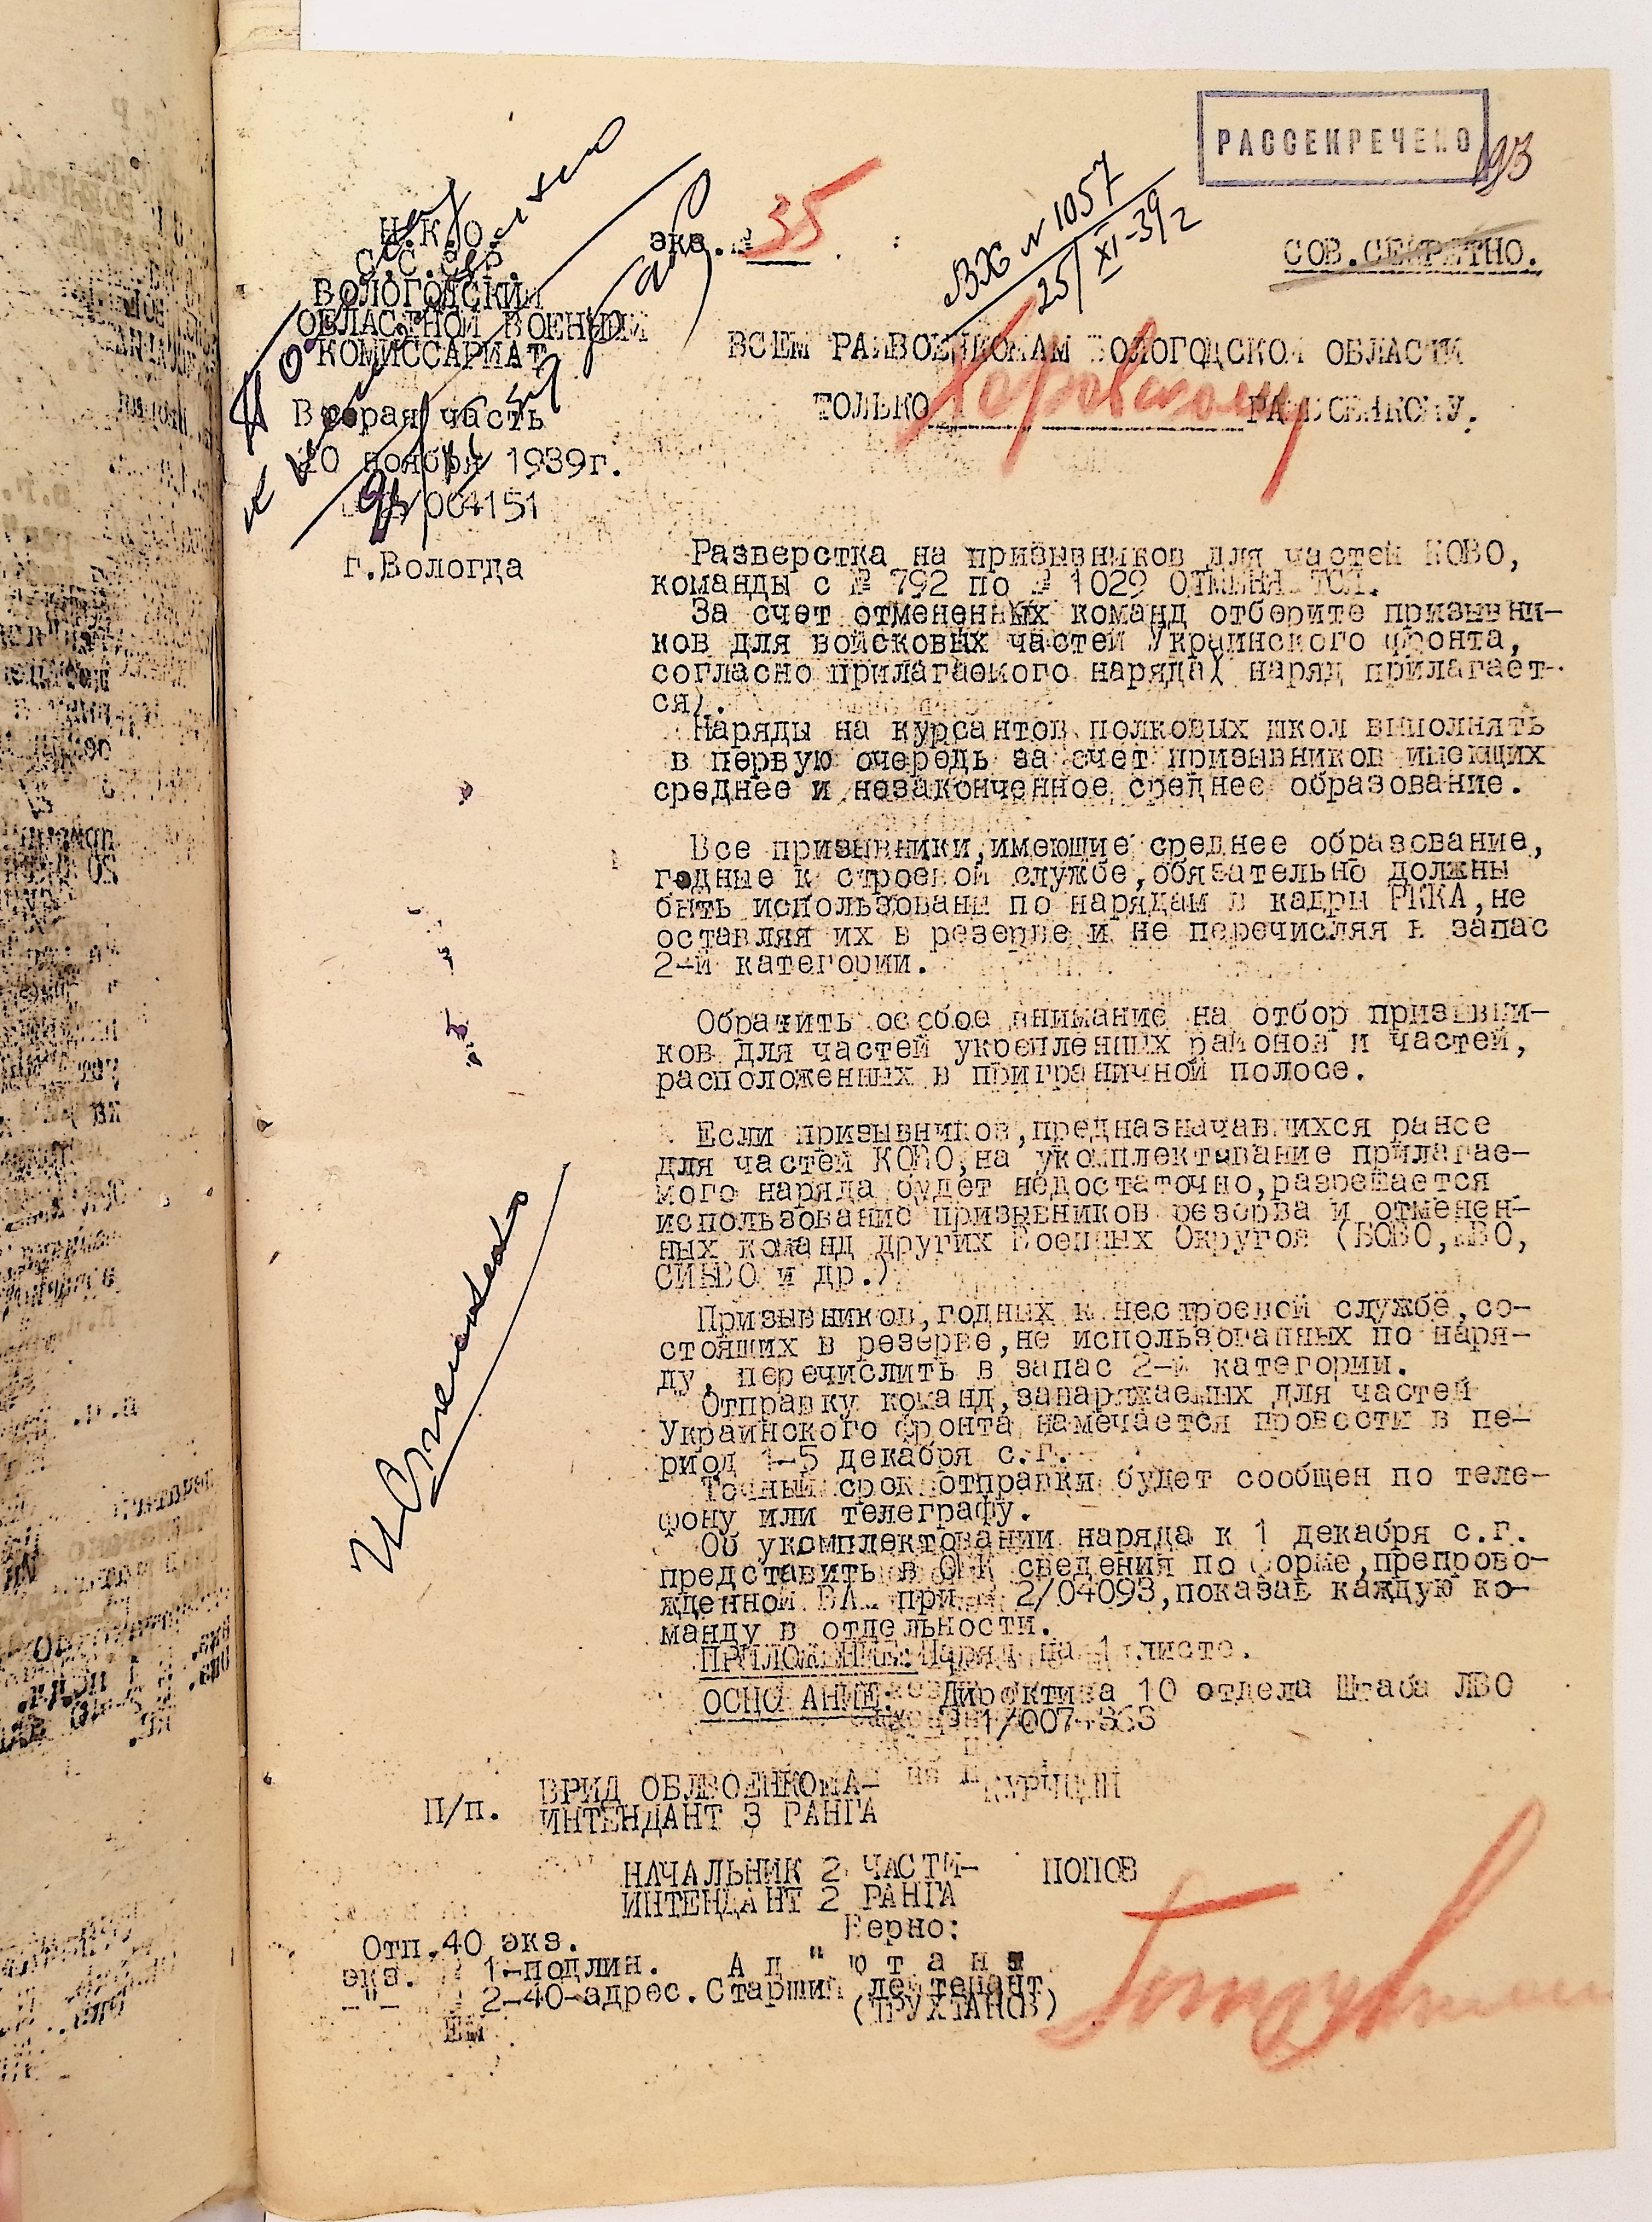 РАССЕКРЕЧЕНО
193
Н.К.О.
С.С.С.Р.
ВОЛОГОДСКИЙ
ОБЛАСТНОЙ ВОЕННЫЙ
КОМИССАРИАТ
Вторая часть
20 ноября 1939г.
004151
г.Вологда
экз.№ 35
Вх N 1057
25/XI-39г
СОВ.СЕКРЕТНО.
ВСЕМ РАЙВОЕНКОМАМ ВОЛОГОДСКОЙ ОБЛАСТИ
ТОЛЬКО Харовскому РАЙВОЕНКОМУ.
Разверстка на призывников для частей КОВО,
команды с № 792 по № 1029 ОТМЕНЯЕТСЯ.
За счет отмененных команд отберите призывни-
ков для войсковых частей Украинского фронта,
согласно прилагаемого наряда( наряд прилагает-
ся).
Наряды на курсантов полковых школ выполнять
в первую очередь за счет призывников имеющих
среднее и незаконченное среднее образование.
Все призывники,имеющие среднее образование,
годные к строевой службе,обязательно должны
быть использованы по нарядам в кадры РККА,не
оставляя их в резерве и не перечисляя в запас
2-й категории.
Обратить особое внимание на отбор призывни-
ков для частей укрепленных районов и частей,
расположенных в приграничной полосе.
Если призывников,предназначавшихся ранее
для частей КОВО,на укомплектывание прилагае-
мого наряда будет недостаточно,разрешается
использование призывников резерва и отменен-
ных команд других Военных Округов (БОВО, ,
СИБВО и др.)
Призывников,годных к нестроевой службе,со-
стоящих в резерве,не использованных по наря-
ду, перечислить в запас 2-й категории.
Отправку команд,занаряжаемых для частей
Украинского фронта намечается провести в пе-
риод 1-5 декабря с.г.
Точный срок отправки будет сообщен по теле-
фону или телеграфу.
Об укомплектовании наряда к 1 декабря с.г.
представить в ОВК сведения по форме,препрово-
жденной ВАМ при № 2/04093,показав каждую ко-
манду в отдельности.
ПРИЛОЖЕНИЕ: Наряд на 1 листе.
ОСНОВАНИЕ: Директива 10 отдела Штаба ЛВО
П/п. ВРИД ОБЛВОЕНКОМА-
ИНТЕНДАНТ 3 РАНГА
НАЧАЛЬНИК 2 ЧАСТИ- ПОПОВ
ИНТЕНДАНТ 2 РАНГА
Верно:
Отп.40 экз.
экз. № 1-подлин. А д " ю т а н т
-"- № 2-40-адрес. Старший лейтенант
(ТРУХАНОВ)
ЕМ